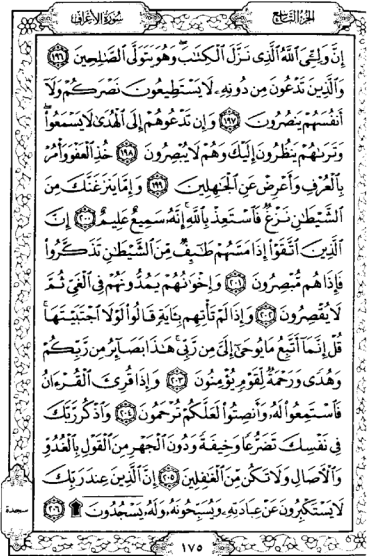 سُورَةُ الأَعْرَافِ الجُزْءُ التَّاسِعُ
إِنَّ وَلِـِّۧىَ ٱللَّهُ ٱلَّذِى نَزَّلَ ٱلْكِتَـٰبَ ۖ وَهُوَ يَتَوَلَّى ٱلصَّـٰلِحِينَ ١٩٦
وَٱلَّذِينَ تَدْعُونَ مِن دُونِهِۦ لَا يَسْتَطِيعُونَ نَصْرَكُمْ وَلَآ
أَنفُسَهُمْ يَنصُرُونَ ١٩٧ وَإِن تَدْعُوهُمْ إِلَى ٱلْهُدَىٰ لَا يَسْمَعُوا۟ ۖ
وَتَرَىٰهُمْ يَنظُرُونَ إِلَيْكَ وَهُمْ لَا يُبْصِرُونَ ١٩٨ خُذِ ٱلْعَفْوَ وَأْمُرْ
بِٱلْعُرْفِ وَأَعْرِضْ عَنِ ٱلْجَـٰهِلِينَ ١٩٩ وَإِمَّا يَنزَغَنَّكَ مِنَ
ٱلشَّيْطَـٰنِ نَزْغٌ فَٱسْتَعِذْ بِٱللَّهِ ۚ إِنَّهُۥ سَمِيعٌ عَلِيمٌ ٢٠٠ إِنَّ
ٱلَّذِينَ ٱتَّقَوْا۟ إِذَا مَسَّهُمْ طَـٰٓئِفٌ مِّنَ ٱلشَّيْطَـٰنِ تَذَكَّرُوا۟
فَإِذَا هُم مُّبْصِرُونَ ٢٠١ وَإِخْوَٰنُهُمْ يَمُدُّونَهُمْ فِى ٱلْغَىِّ ثُمَّ
لَا يُقْصِرُونَ ٢٠٢ وَإِذَا لَمْ تَأْتِهِم بِـَٔايَةٍ قَالُوا۟ لَوْلَا ٱجْتَبَيْتَهَا ۚ
قُلْ إِنَّمَآ أَتَّبِعُ مَا يُوحَىٰٓ إِلَىَّ مِن رَّبِّى ۚ هَـٰذَا بَصَآئِرُ مِن رَّبِّكُمْ
وَهُدًى وَرَحْمَةٌ لِّقَوْمٍ يُؤْمِنُونَ ٢٠٣ وَإِذَا قُرِئَ ٱلْقُرْءَانُ
فَٱسْتَمِعُوا۟ لَهُۥ وَأَنصِتُوا۟ لَعَلَّكُمْ تُرْحَمُونَ ٢٠٤ وَٱذْكُر رَّبَّكَ
فِى نَفْسِكَ تَضَرُّعًا وَخِيفَةً وَدُونَ ٱلْجَهْرِ مِنَ ٱلْقَوْلِ بِٱلْغُدُوِّ
وَٱلْـَٔاصَالِ وَلَا تَكُن مِّنَ ٱلْغَـٰفِلِينَ ٢٠٥ إِنَّ ٱلَّذِينَ عِندَ رَبِّكَ
لَا يَسْتَكْبِرُونَ عَنْ عِبَادَتِهِۦ وَيُسَبِّحُونَهُۥ وَلَهُۥ يَسْجُدُونَ ۩ ٢٠٦
سجدة
١٧٥